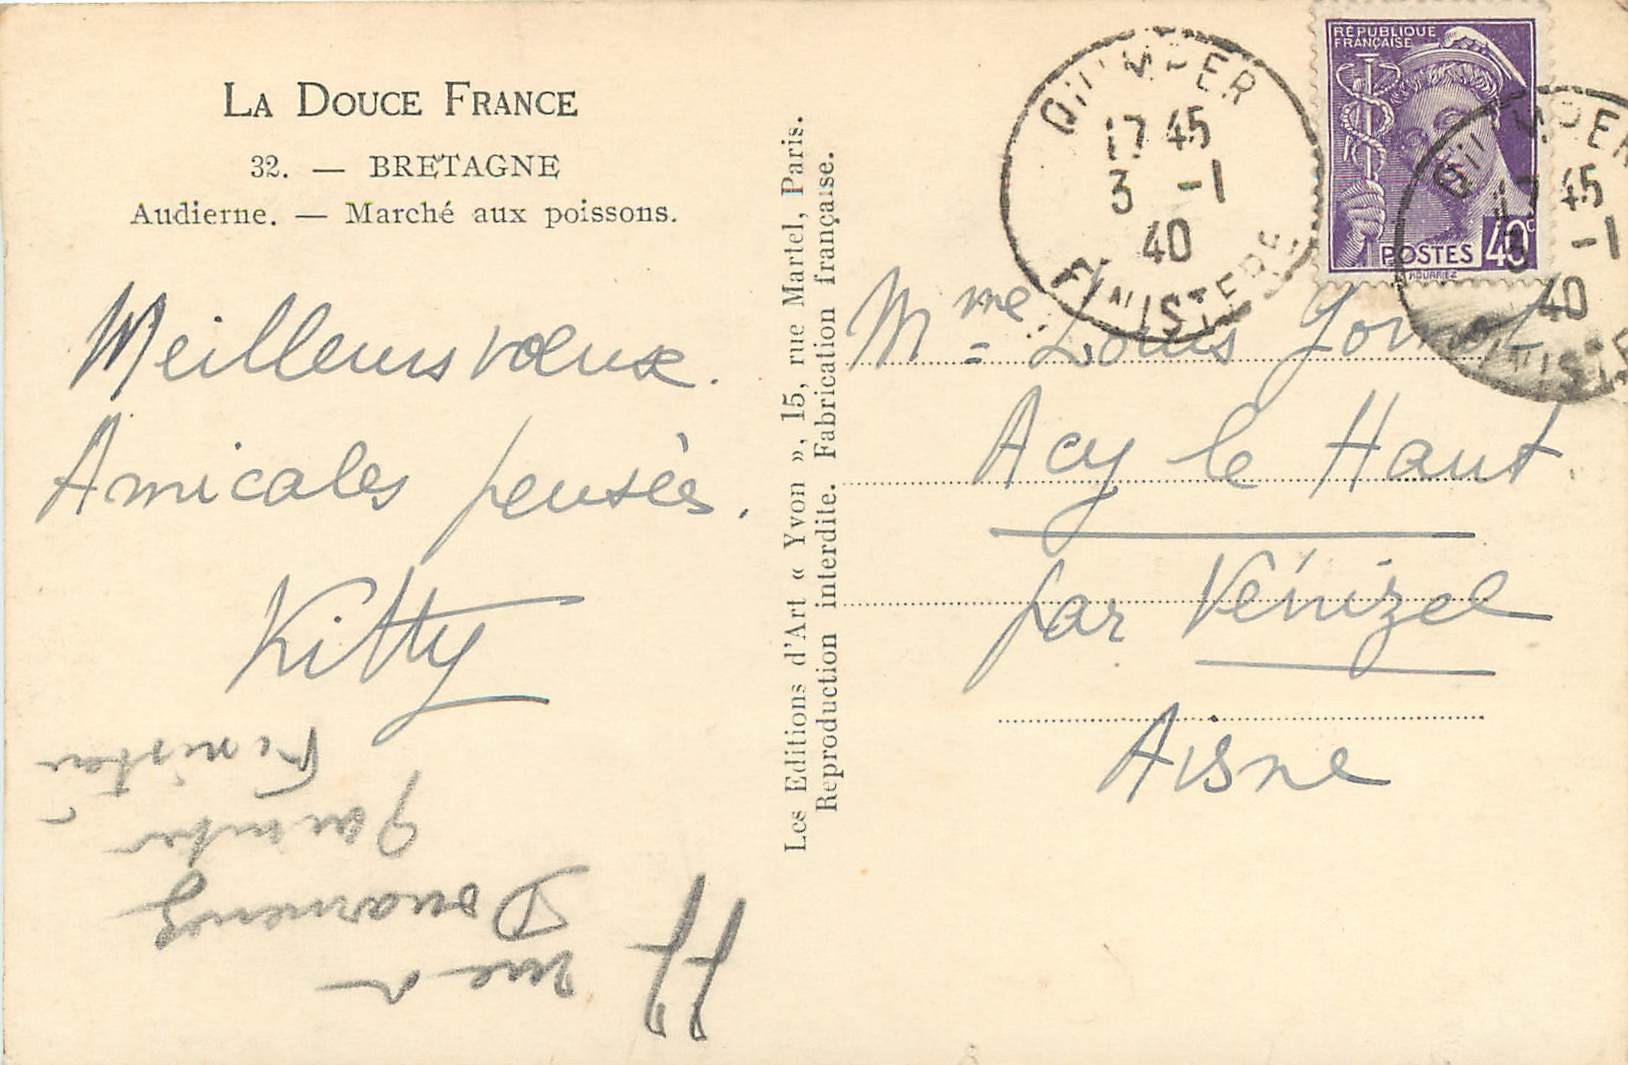 LA DOUCE FRANCE
32. — BRETAGNE
Audierne. — Marché aux poissons.
Meilleurs vœux.
Amicales pensées.
Kitty
77
rue a
Douarnenez
Quimper
Finistère
Les Editions d'Art « Yvon », 15, rue Martel, Paris.
Reproduction interdite. Fabrication française.
QUIMPER
17 45
3 -1
40
FINISTERE
RÉPUBLIQUE
FRANÇAISE
POSTES 40c
HOURRIEZ
QUIMPER
17 45
3 -1
40
FINISTE
Mme Louis
Acy le Haut
par Vénizel
Aisne